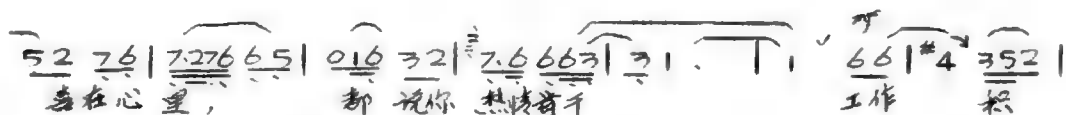 52 76 | 7.276 65 | 016 32 | 7.6 663 | 31 . | 1 ✓ 66 | #4 352 |
喜在心里, 都说你 热情肯干 工作 积